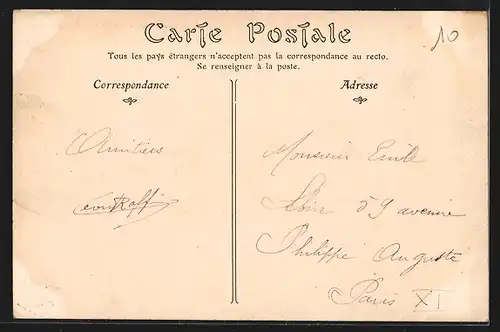 Carte Postale
10
Tous les pays étrangers n'acceptent pas la correspondance au recto.
Se renseigner à la poste.
Correspondance
Amitiés
Adresse
Monsieur Emile
59 avenue
Philippe Auguste
Paris XI